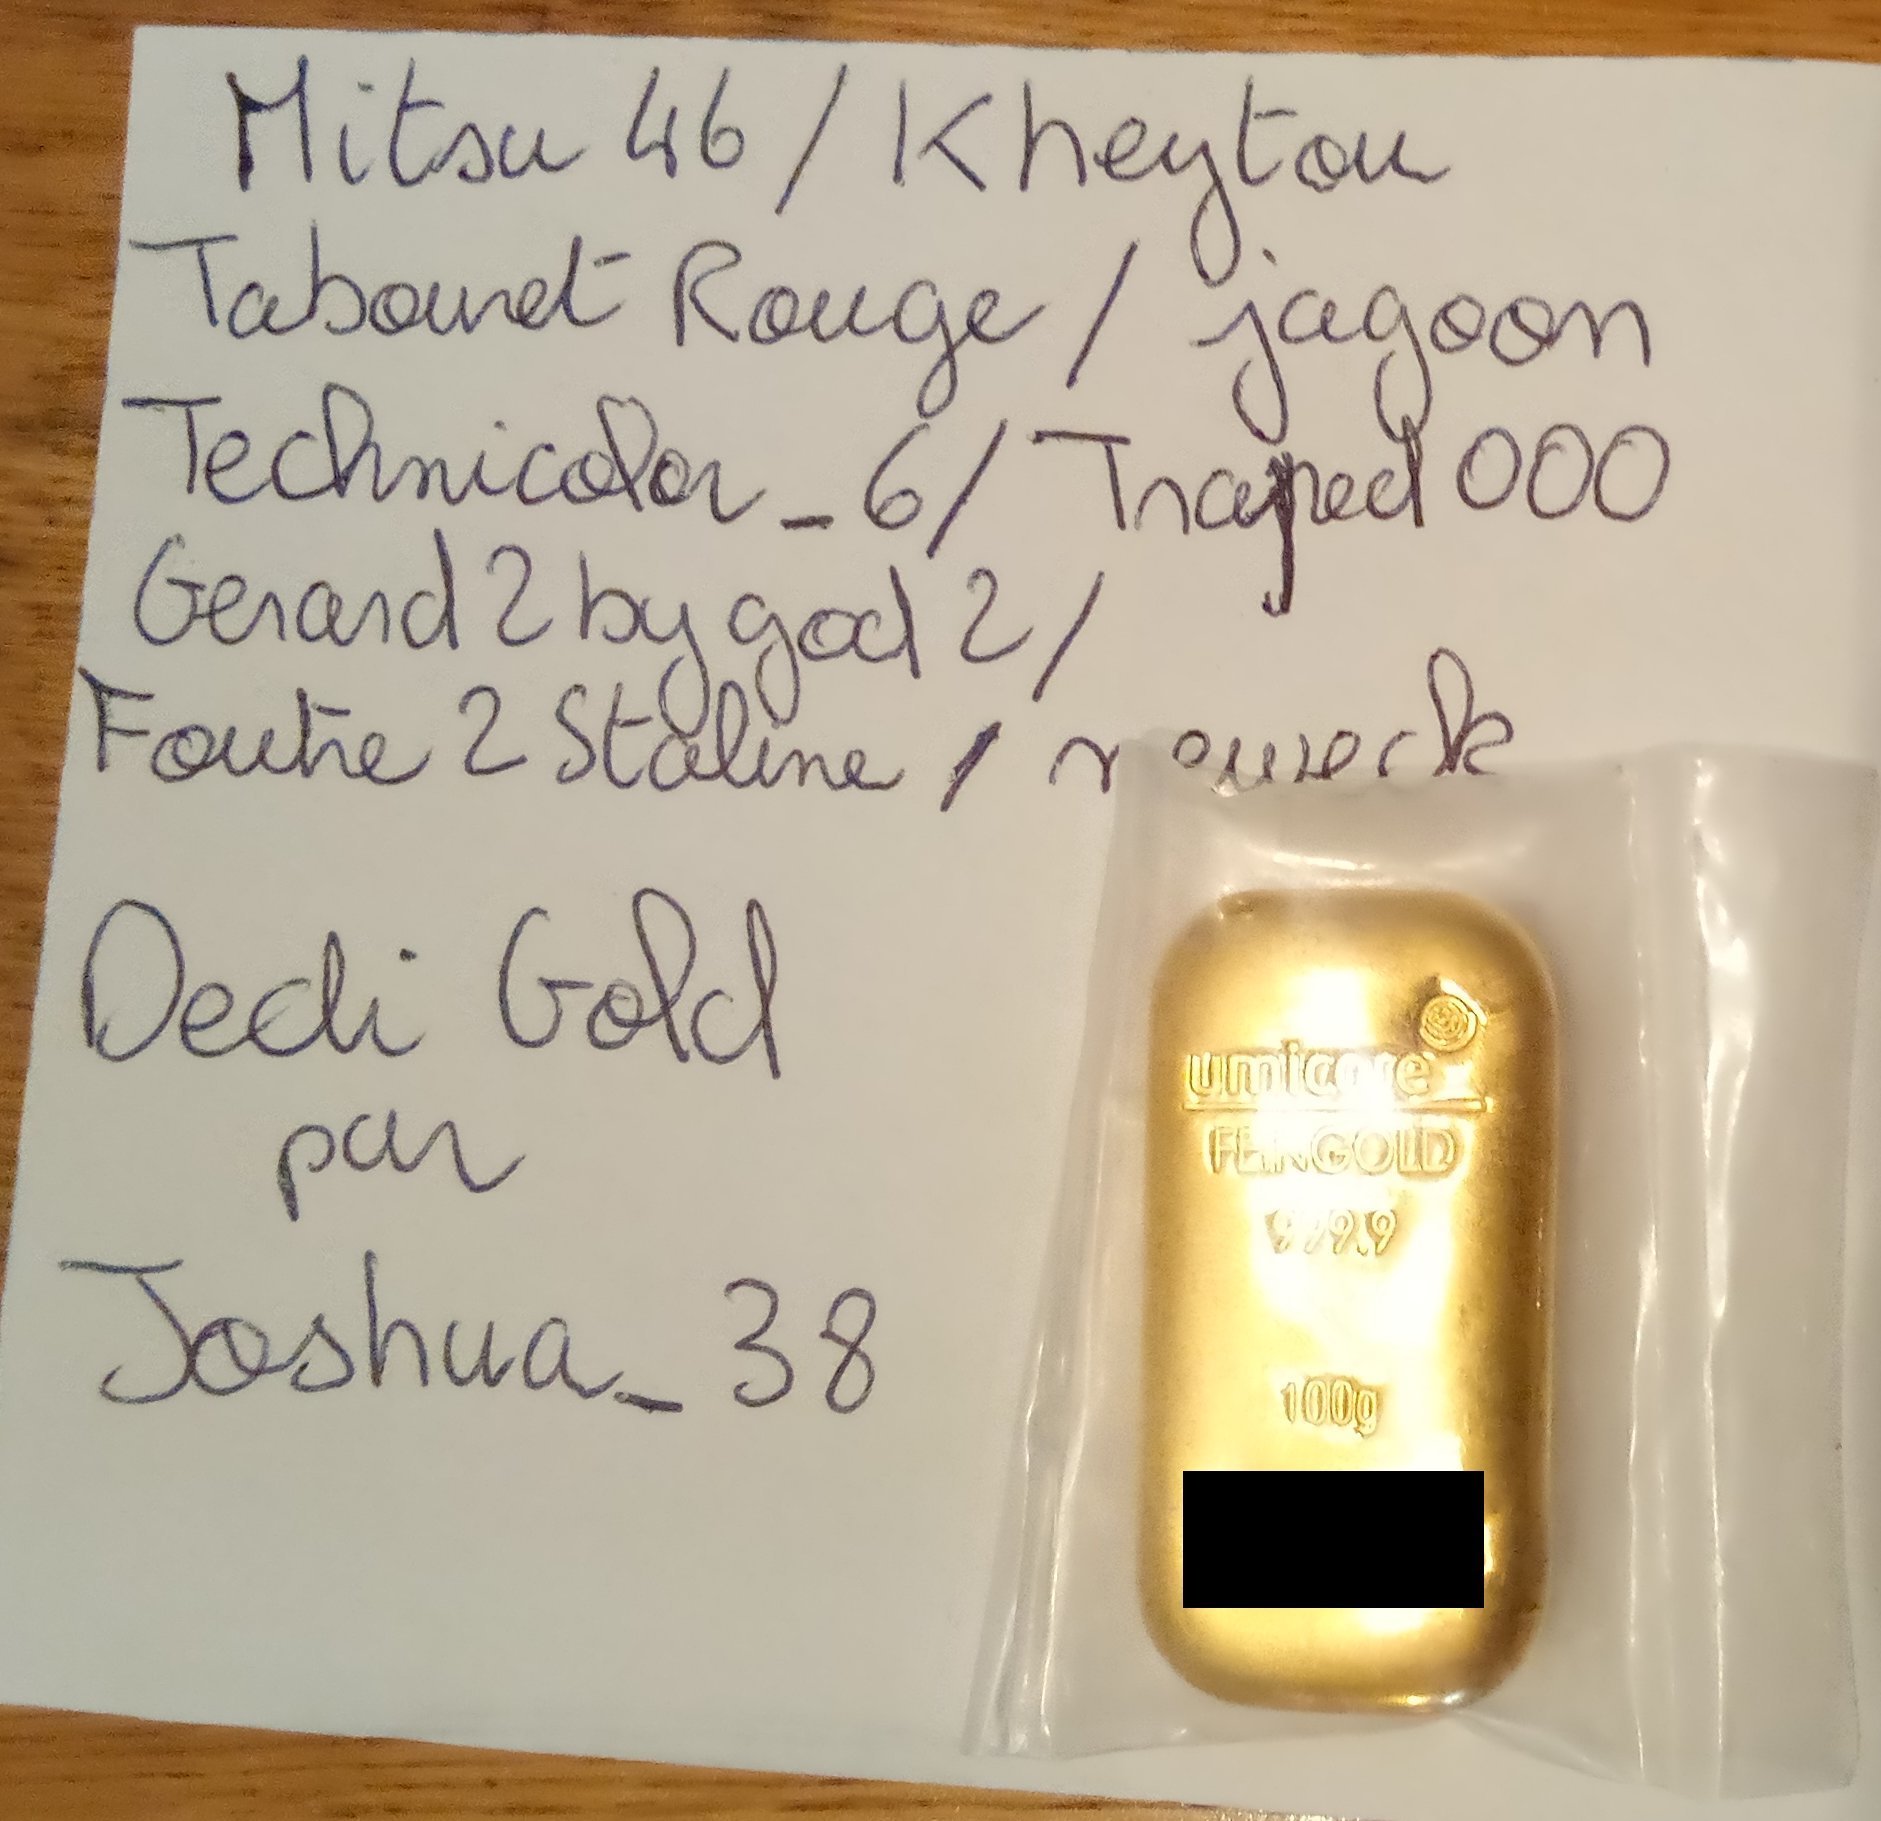 Mitsu 46 / Kheytou
Tabouret Rouge / jagoon
Technicolor_6 / Traped 000
Gerard 2 by god 2 /
Foutre 2 Staline /
Dedi Gold
par
Joshua_38
umicore
FEINGOLD
999.9
100g